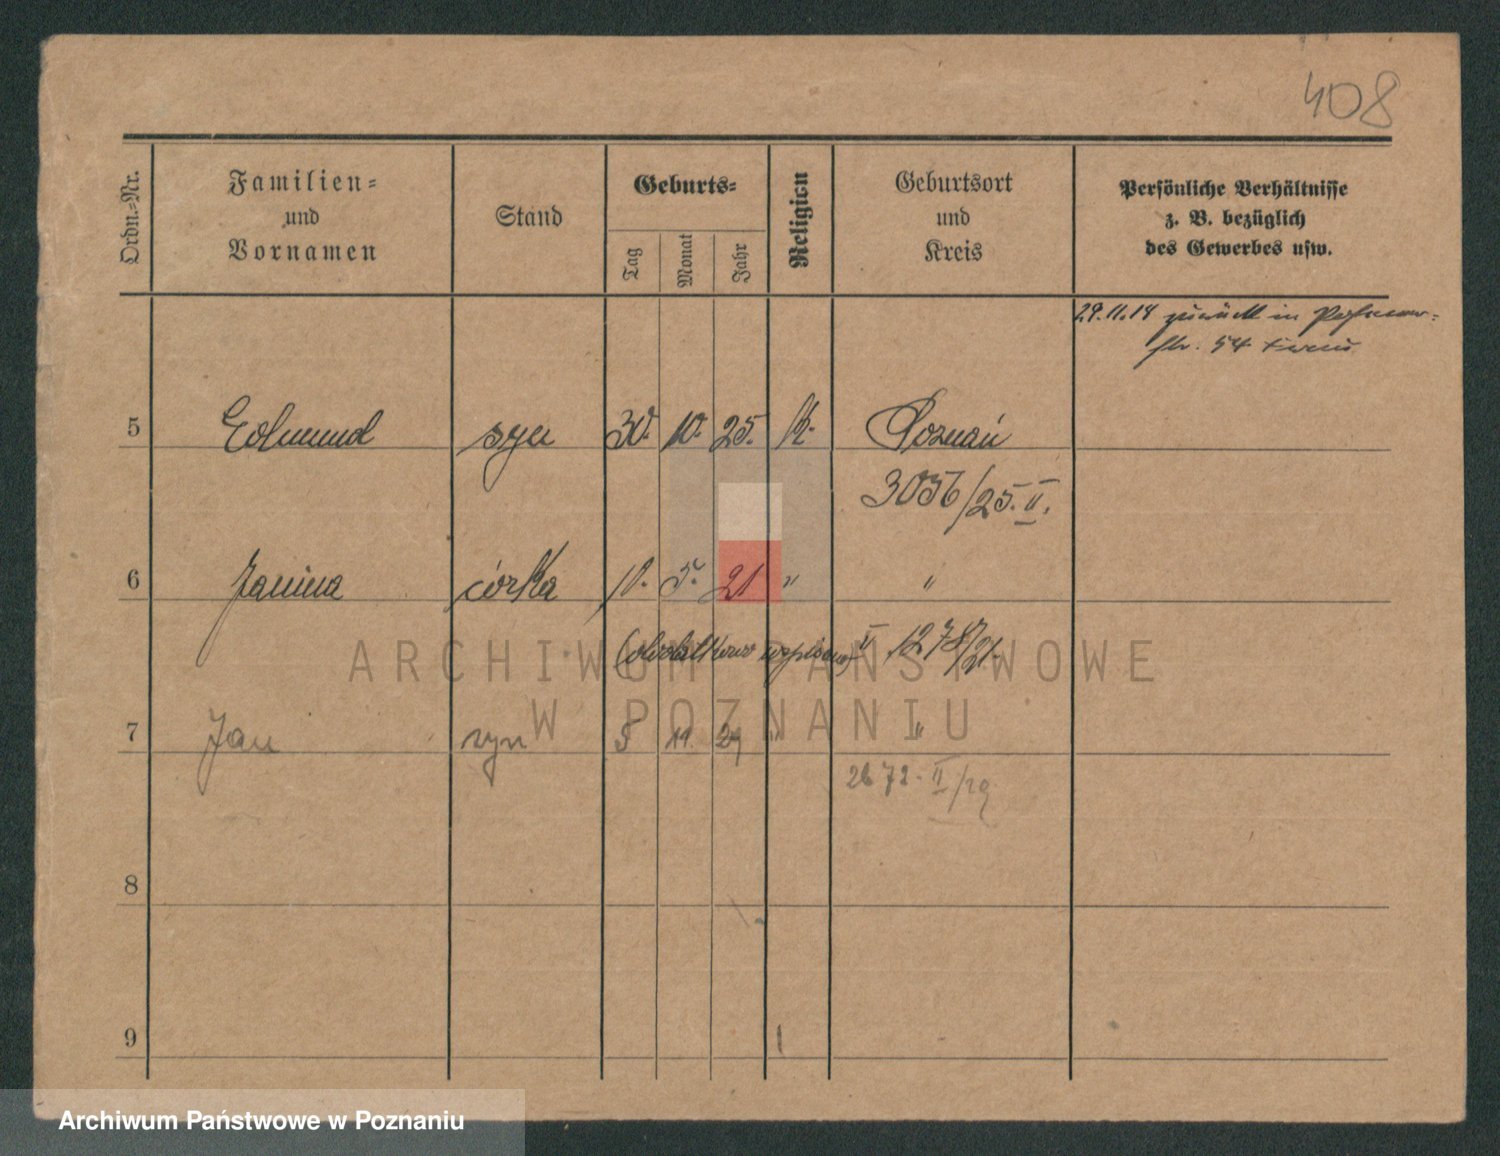 408
Ordn.-Nr.
Familien-
und
Vornamen
Stand
Geburts-
Tag
Monat
Jahr
Religion
Geburtsort
und
Kreis
Persönliche Verhältnisse
z. B. bezüglich
des Gewerbes usw.
29.11.14 zurück in
str. 54
5 Edmund syn 30. 10. 25. k. Poznań
3056/25. II.
6 Janina córka 10. 5. 21 " "
(dodatkowo wpisano) II 1278/21.
7 Jan syn 5 11 29 " "
2672. II/29
8
9
ARCHIWUM PAŃSTWOWE
W POZNANIU
Archiwum Państwowe w Poznaniu